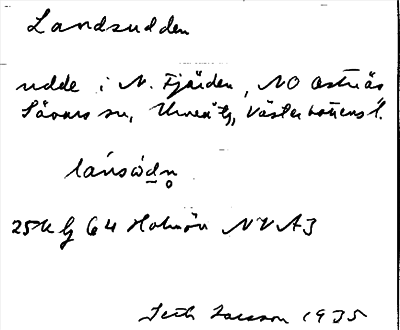 Landsudden
udde i N. Fjärden, NO Östnäs
Sävars sn, Umeå tg, Västerbottens l.
lánsòdn̥
64 Holmön NV A3
Seth Larsson 1935